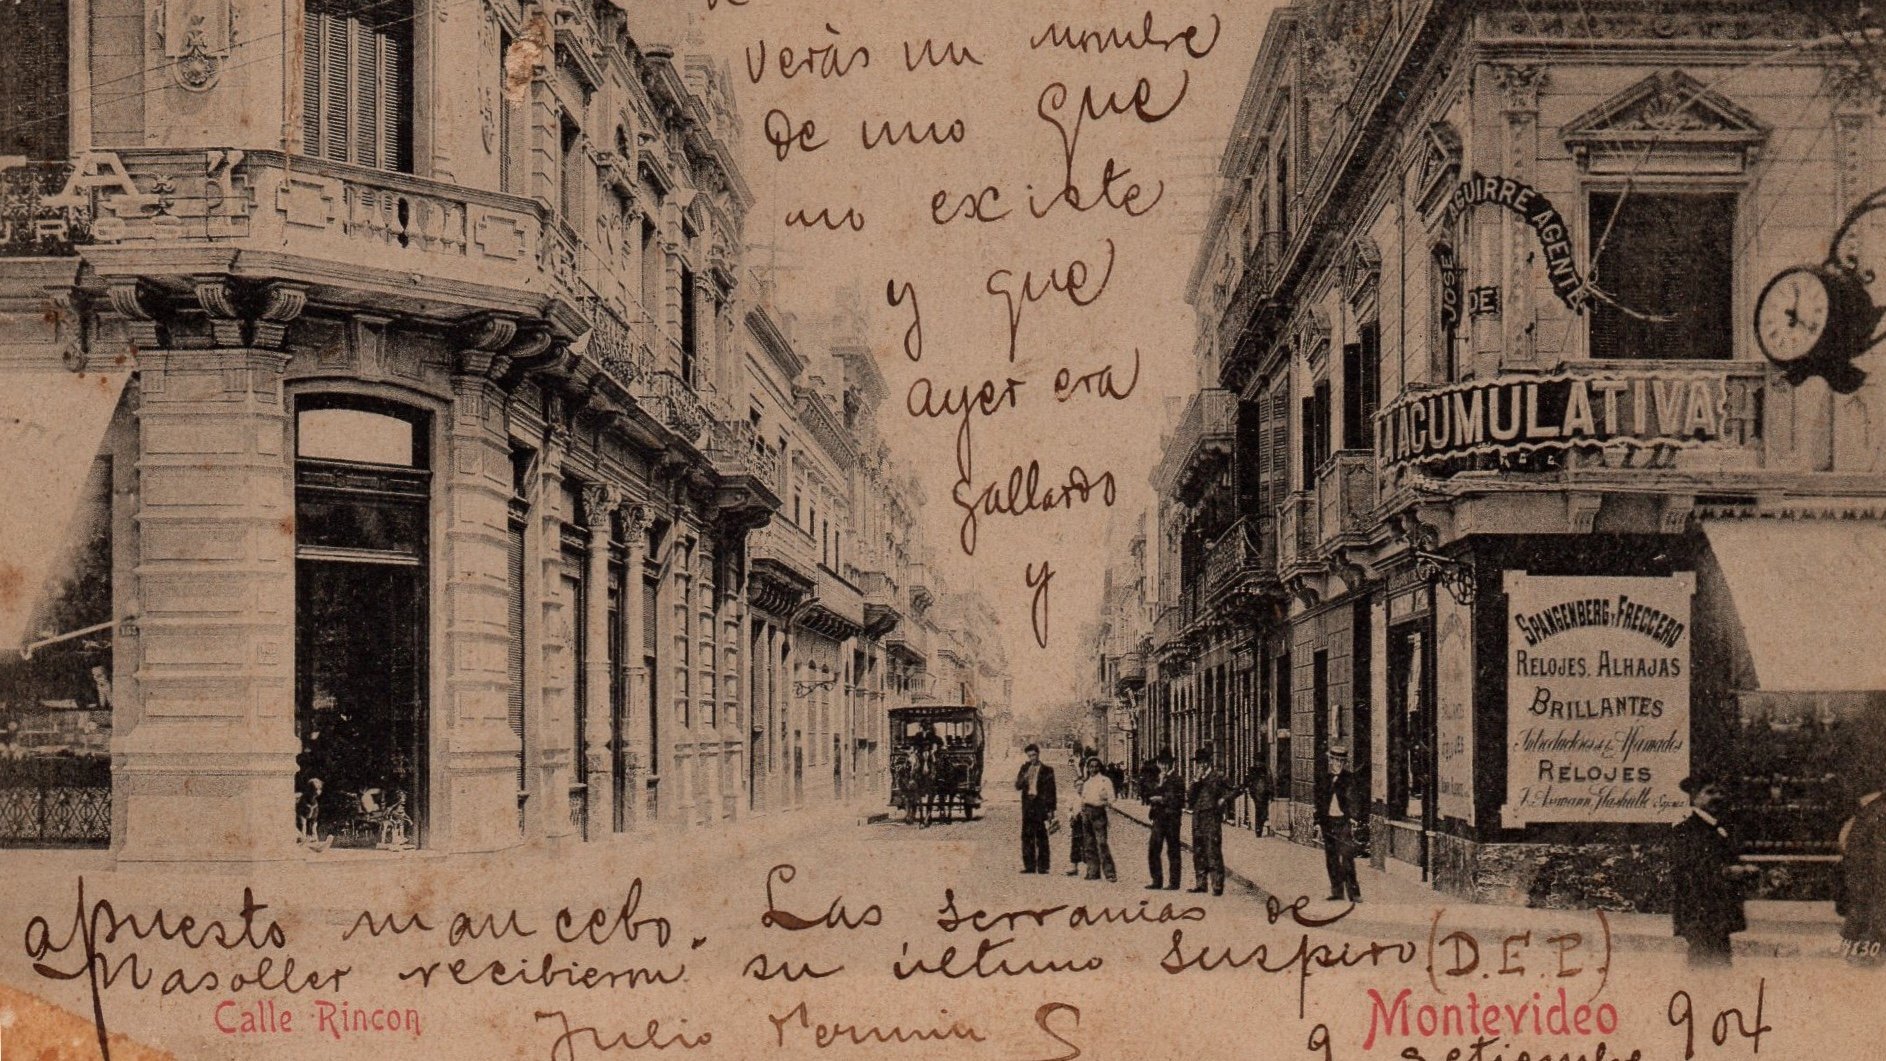 verás un nombre
de uno que
no existe
y que
ayer era
gallardo
y
apuesto mancebo. Las serranias de
Masoller recibieron su último suspiro (D.E.P.)
Julio
S
9 setiembre 904
Calle Rincon
Montevideo
TA"
JOSE AGUIRRE AGENTE
DE
LA ACUMULATIVA
SPANGENBERG Y FRECCERO
RELOJES. ALHAJAS
BRILLANTES
RELOJES